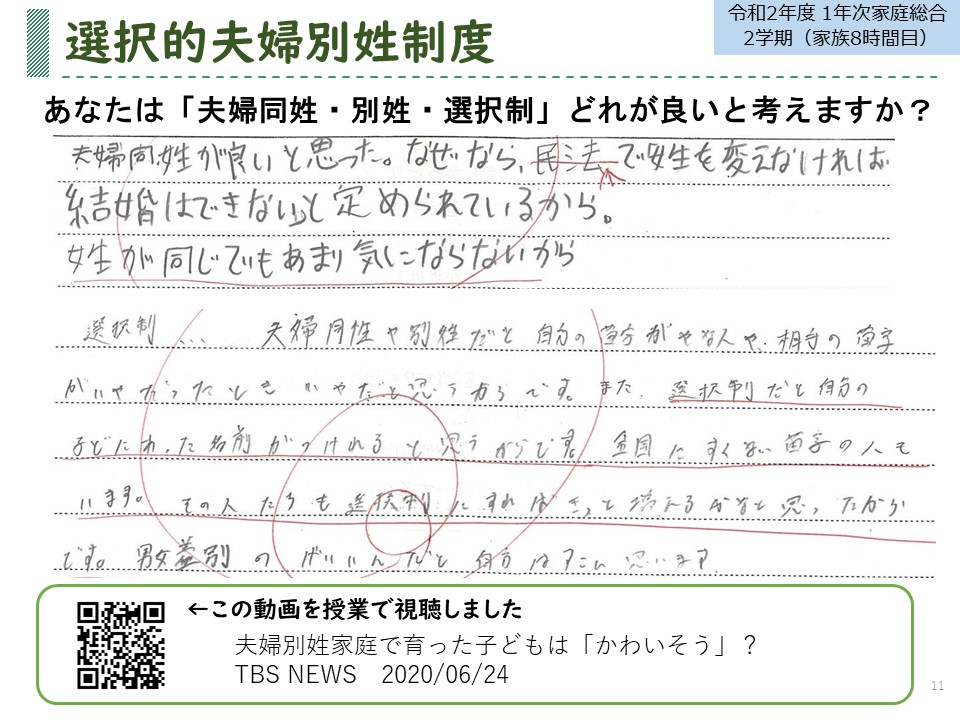 選択的夫婦別姓制度
令和2年度 1年次家庭総合
2学期（家族8時間目）
あなたは「夫婦同姓・別姓・選択制」どれが良いと考えますか？
夫婦同姓が良いと思った。なぜなら、民法で姓を変えなければ
結婚はできないと定められているから。
姓が同じでもあまり気にならないから
選択制… 夫婦同性や別性だと自分の苗字がやな人や、相手の苗字
がいやだったときいやだと思うからです。また、選択制だと自分の
子どにあった名前がつけれると思うからです。全国にすくない苗字の人も
います。その人たちも選択制にすればきっと増えるかなと思ったから
です。男女差別のげいいんだと自分は思います
←この動画を授業で視聴しました
夫婦別姓家庭で育った子どもは「かわいそう」？
TBS NEWS 2020/06/24
11